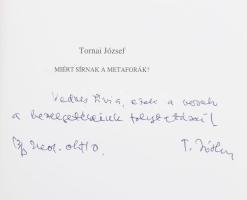 Tornai József
MIÉRT SÍRNAK A METAFORÁK?
Kedves Lívia, ezek a versek
a beszélgetéseink folytatásai!
Bp. okt. 10. T. József